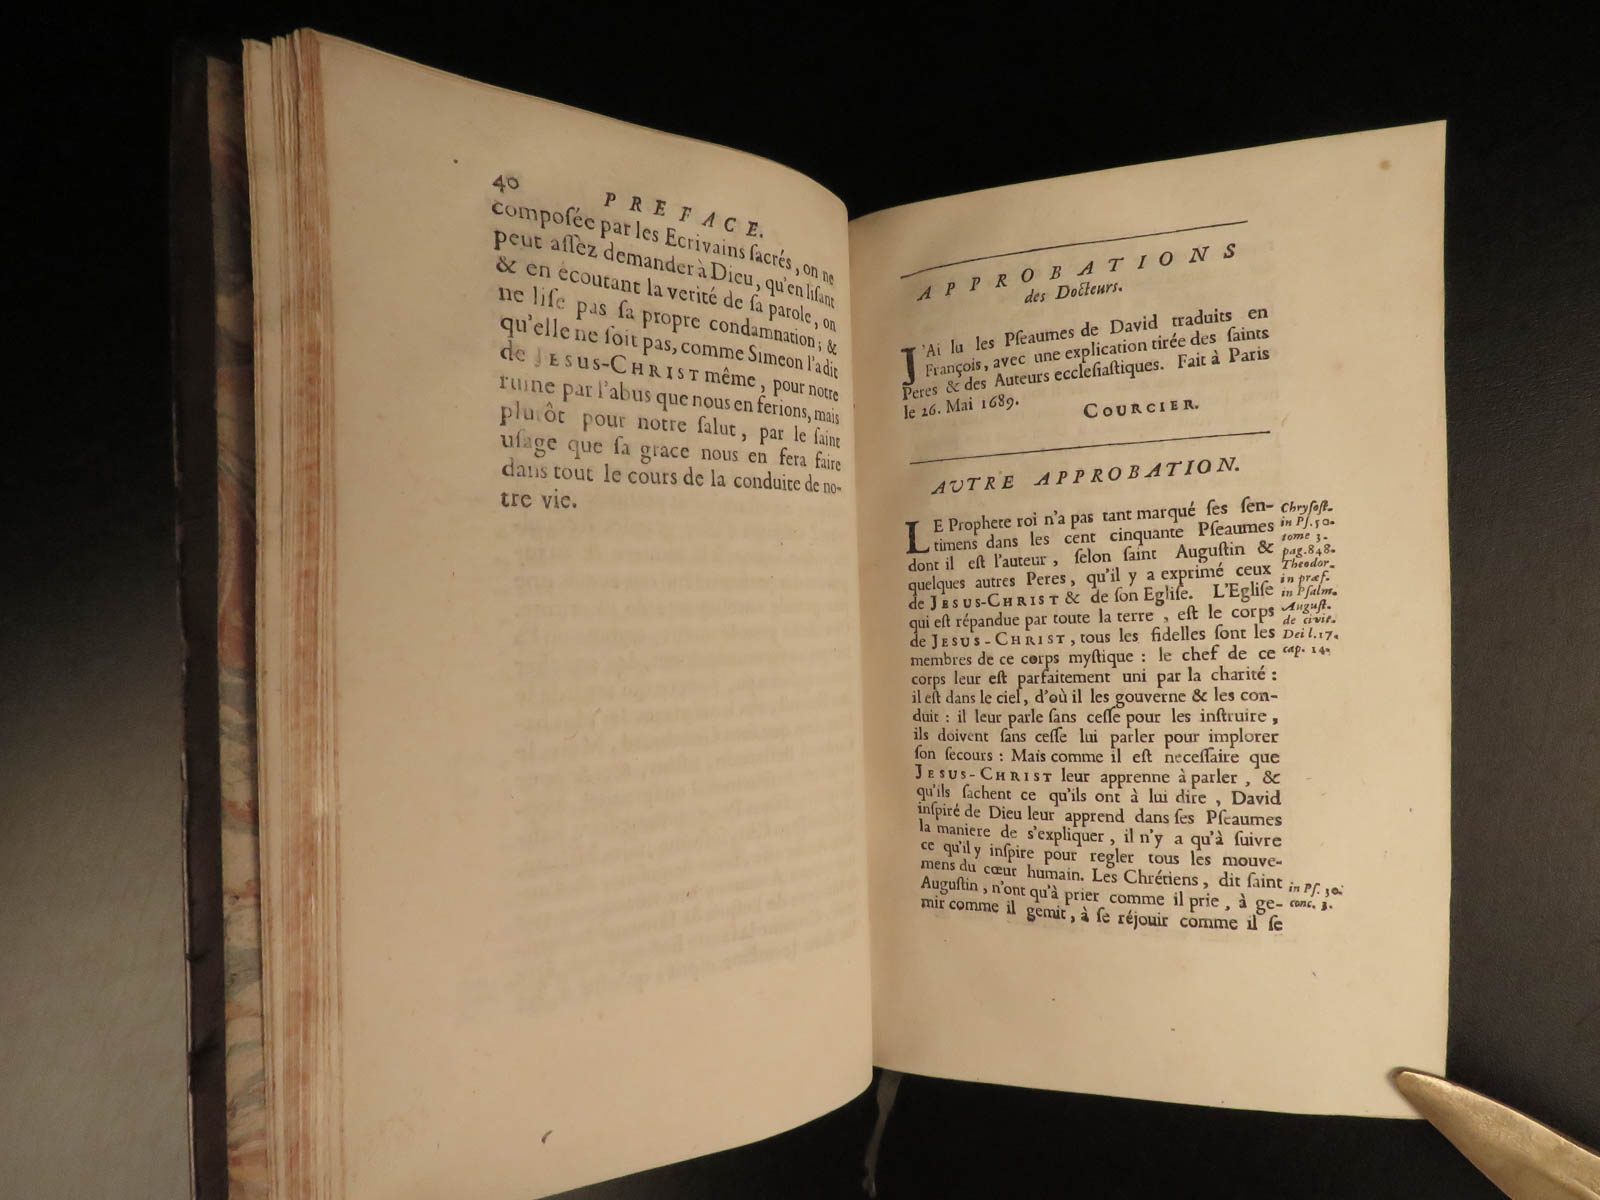 40
PREFACE.
composée par les Ecrivains ſacrés, on ne
peut aſſez demander à Dieu, qu'en liſant
& en écoutant la verité de ſa parole, on
ne liſe pas ſa propre condamnation; &
qu'elle ne ſoit pas, comme Simeon l'a dit
de JESUS-CHRIST même, pour notre
ruine par l'abus que nous en ferions, mais
plutôt pour notre ſalut, par le ſaint
uſage que ſa grace nous en fera faire
dans tout le cours de la conduite de no-
tre vie.
APPROBATIONS
des Docteurs.
J'Ai lu les Pſeaumes de David traduits en
François, avec une explication tirée des ſaints
Peres & des Auteurs eccleſiaſtiques. Fait à Paris
le 26. Mai 1689.
COURCIER.
AVTRE APPROBATION.
LE Prophete roi n'a pas tant marqué ſes ſen-
timens dans les cent cinquante Pſeaumes
dont il eſt l'auteur, ſelon ſaint Auguſtin &
quelques autres Peres, qu'il y a exprimé ceux
de JESUS-CHRIST & de ſon Egliſe. L'Egliſe
qui eſt répandue par toute la terre, eſt le corps
de JESUS-CHRIST, tous les fidelles ſont les
membres de ce corps myſtique : le chef de ce
corps leur eſt parfaitement uni par la charité :
il eſt dans le ciel, d'où il les gouverne & les con-
duit : il leur parle ſans ceſſe pour les inſtruire,
ils doivent ſans ceſſe lui parler pour implorer
ſon ſecours : Mais comme il eſt neceſſaire que
JESUS-CHRIST leur apprenne à parler, &
qu'ils ſachent ce qu'ils ont à lui dire, David
inſpiré de Dieu leur apprend dans ſes Pſeaumes
la maniere de s'expliquer, il n'y a qu'à ſuivre
ce qu'il y inſpire pour regler tous les mouve-
mens du cœur humain. Les Chrétiens, dit ſaint
Auguſtin, n'ont qu'à prier comme il prie, à ge-
mir comme il gemit, à ſe réjouir comme il ſe
Chryſoſt.
in Pſ. 50.
tome 3.
pag. 848.
Theodor.
in præf.
in Pſalm.
Auguſt.
de civit.
Dei l. 17.
cap. 14.
in Pſ. 30.
conc. 3.